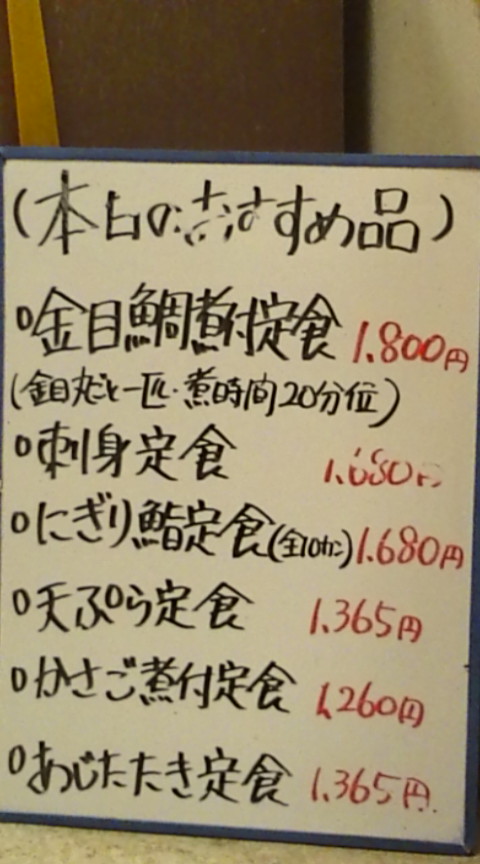 (本日のおすすめ品)
○金目鯛煮付定食 1.800円
(金目丸ごと一匹・煮時間20分位)
○刺身定食 1.680円
○にぎり鮨定食(全10カン) 1.680円
○天ぷら定食 1.365円
○かさご煮付定食 1,260円
○あじたたき定食 1.365円